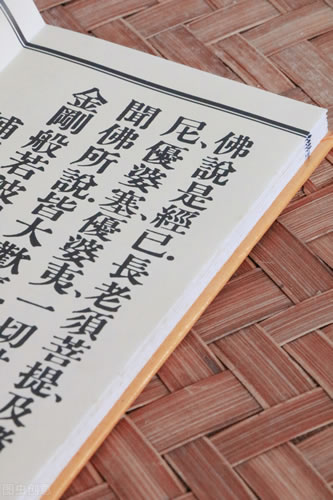 佛說是經已.長老須菩提、及
尼、優婆塞、優婆夷、一切
聞佛所說.皆大歡
金剛般若波
補